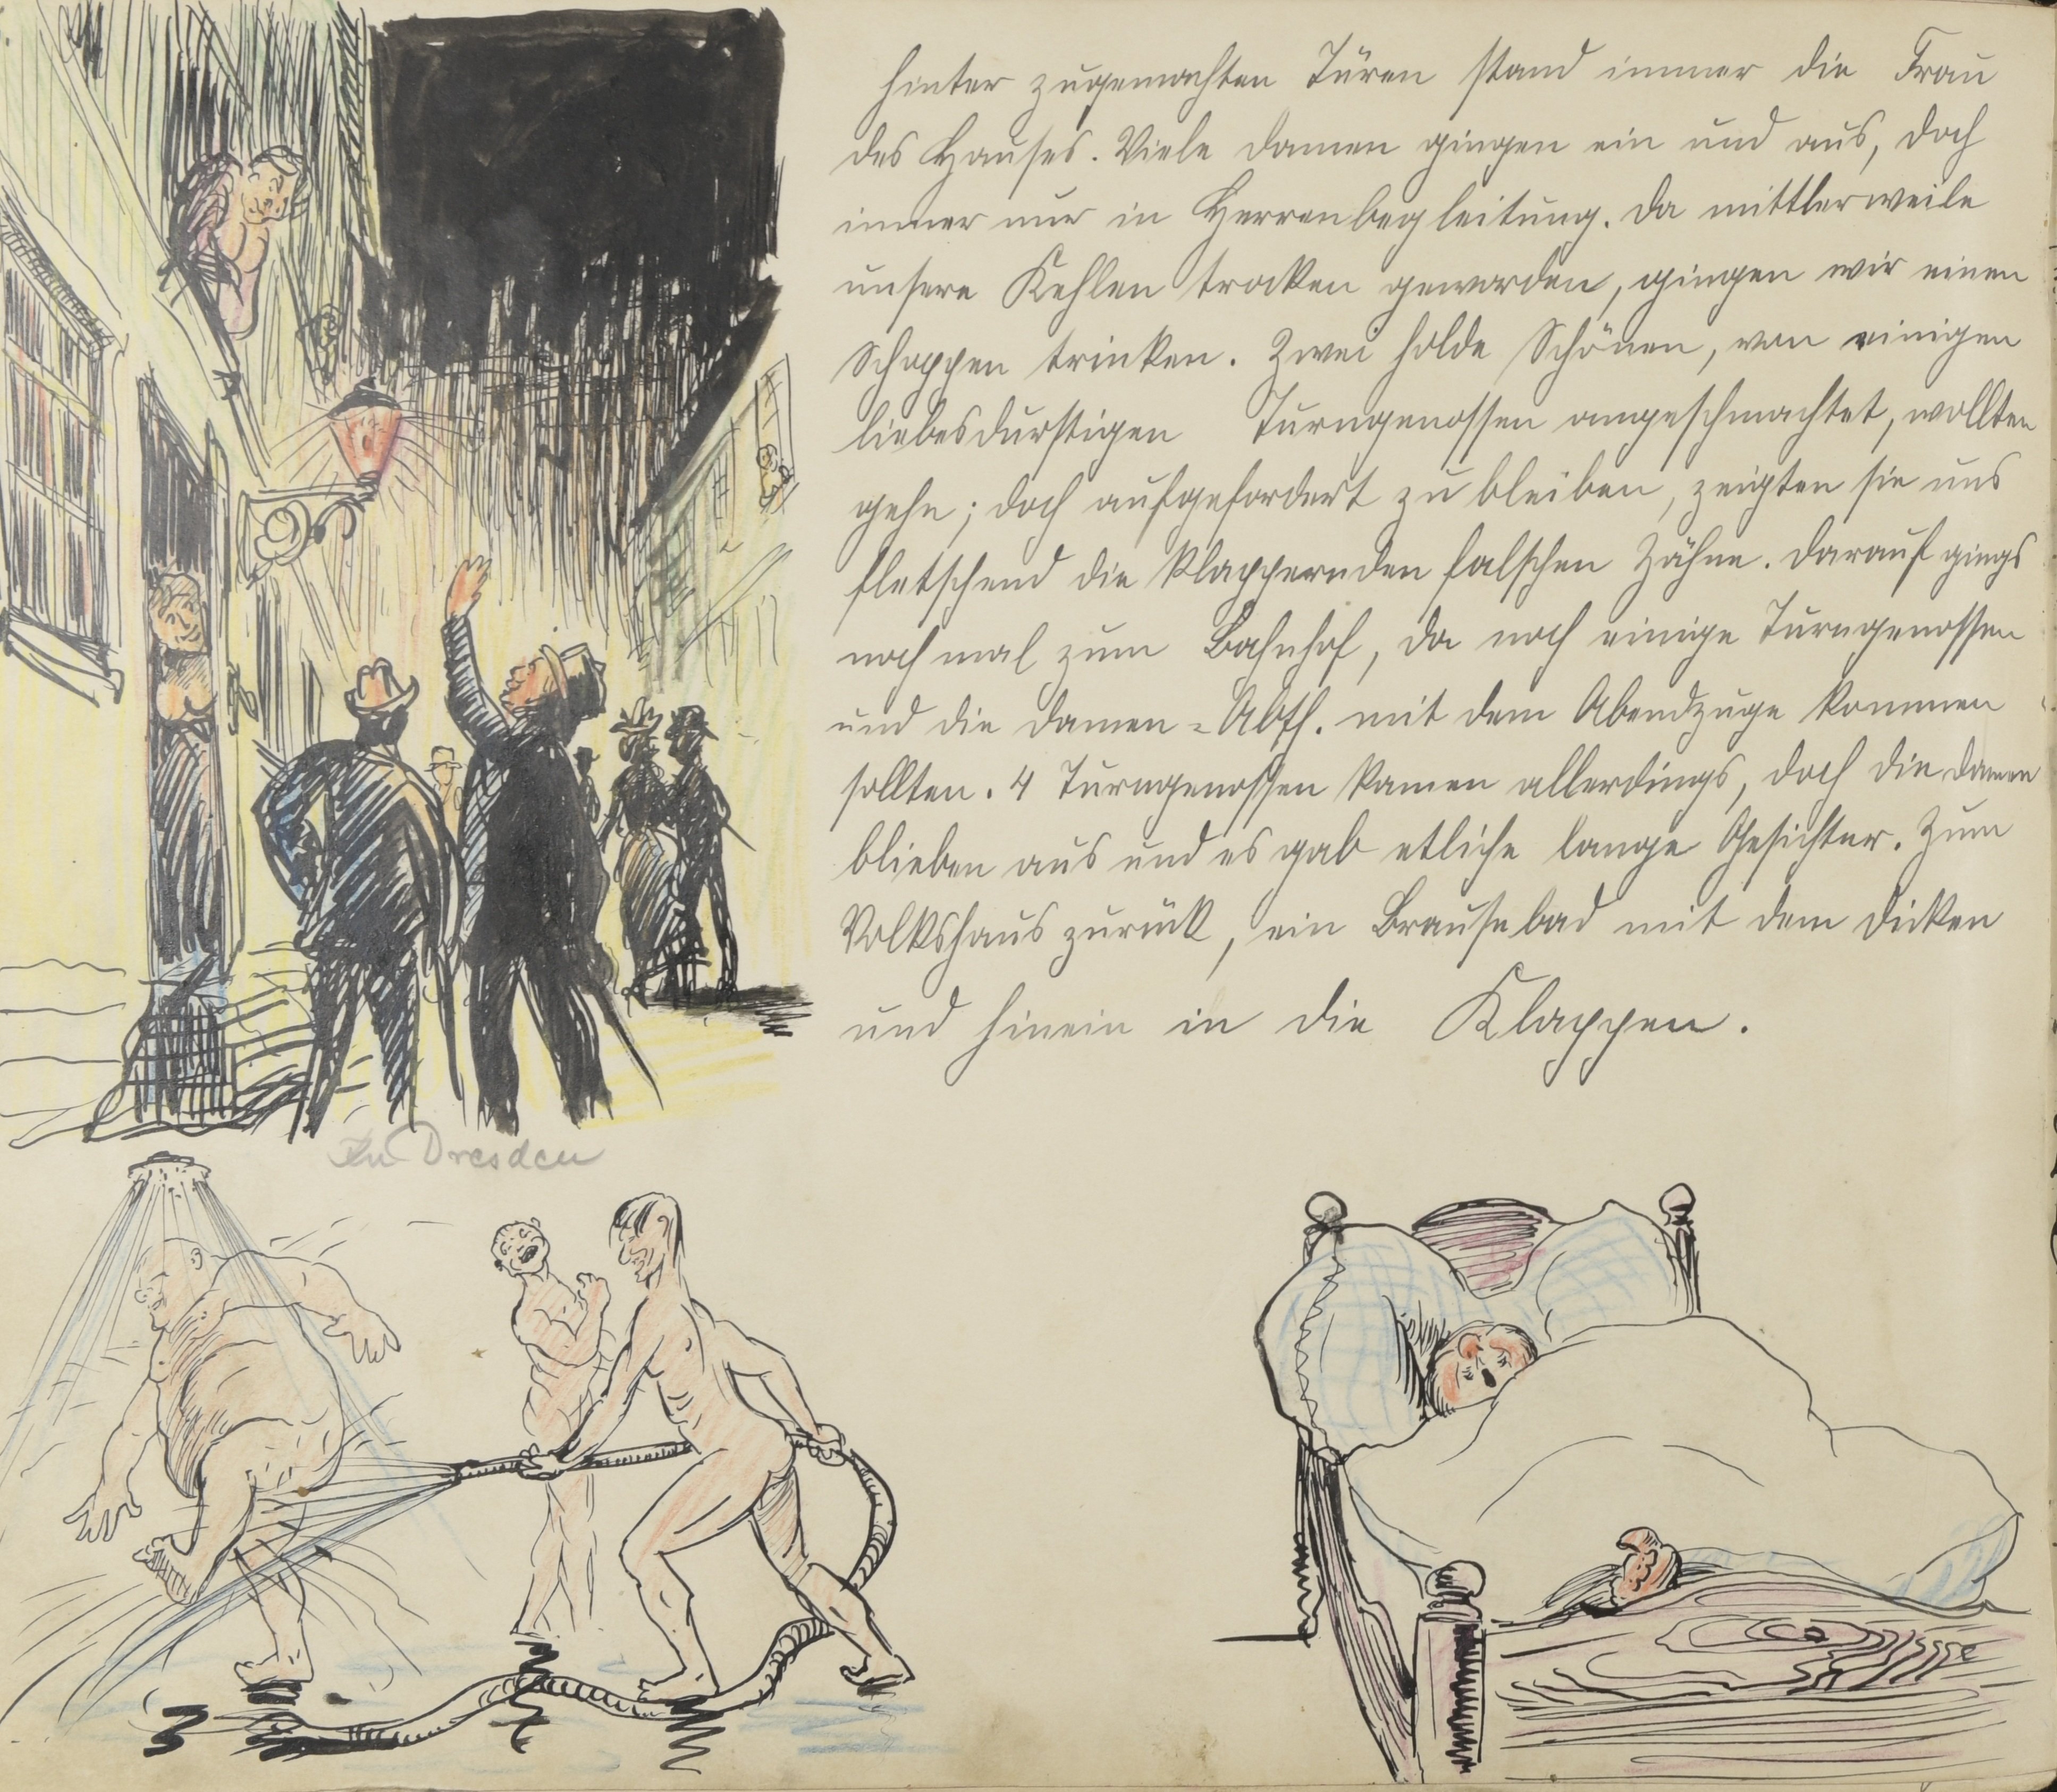 hinter zugemachten Türen stand immer die Frau
des Hauses. Viele Damen gingen ein und aus, doch
immer nur in Herrenbegleitung. Da mittlerweile
unsere Kehlen trocken geworden, gingen wir einen
Schoppen trinken. Zwei holde Schönen, von einigen
liebesdurstigen Turngenossen angeschmachtet, wollten
gehn; doch aufgefordert zu bleiben, zeigten sie uns
fletschend die klappernden falschen Zähne. Darauf gings
noch mal zum Bahnhof, da noch einige Turngenossen
und die Damen-Abth. mit dem Abendzuge kommen
sollten. 4 Turngenossen kamen allerdings, doch die Damen
blieben aus und es gab etliche lange Gesichter. Zum
Volkshaus zurück, ein Brausebad mit dem Dicken
und hinein in die Klappen.
In Dresden